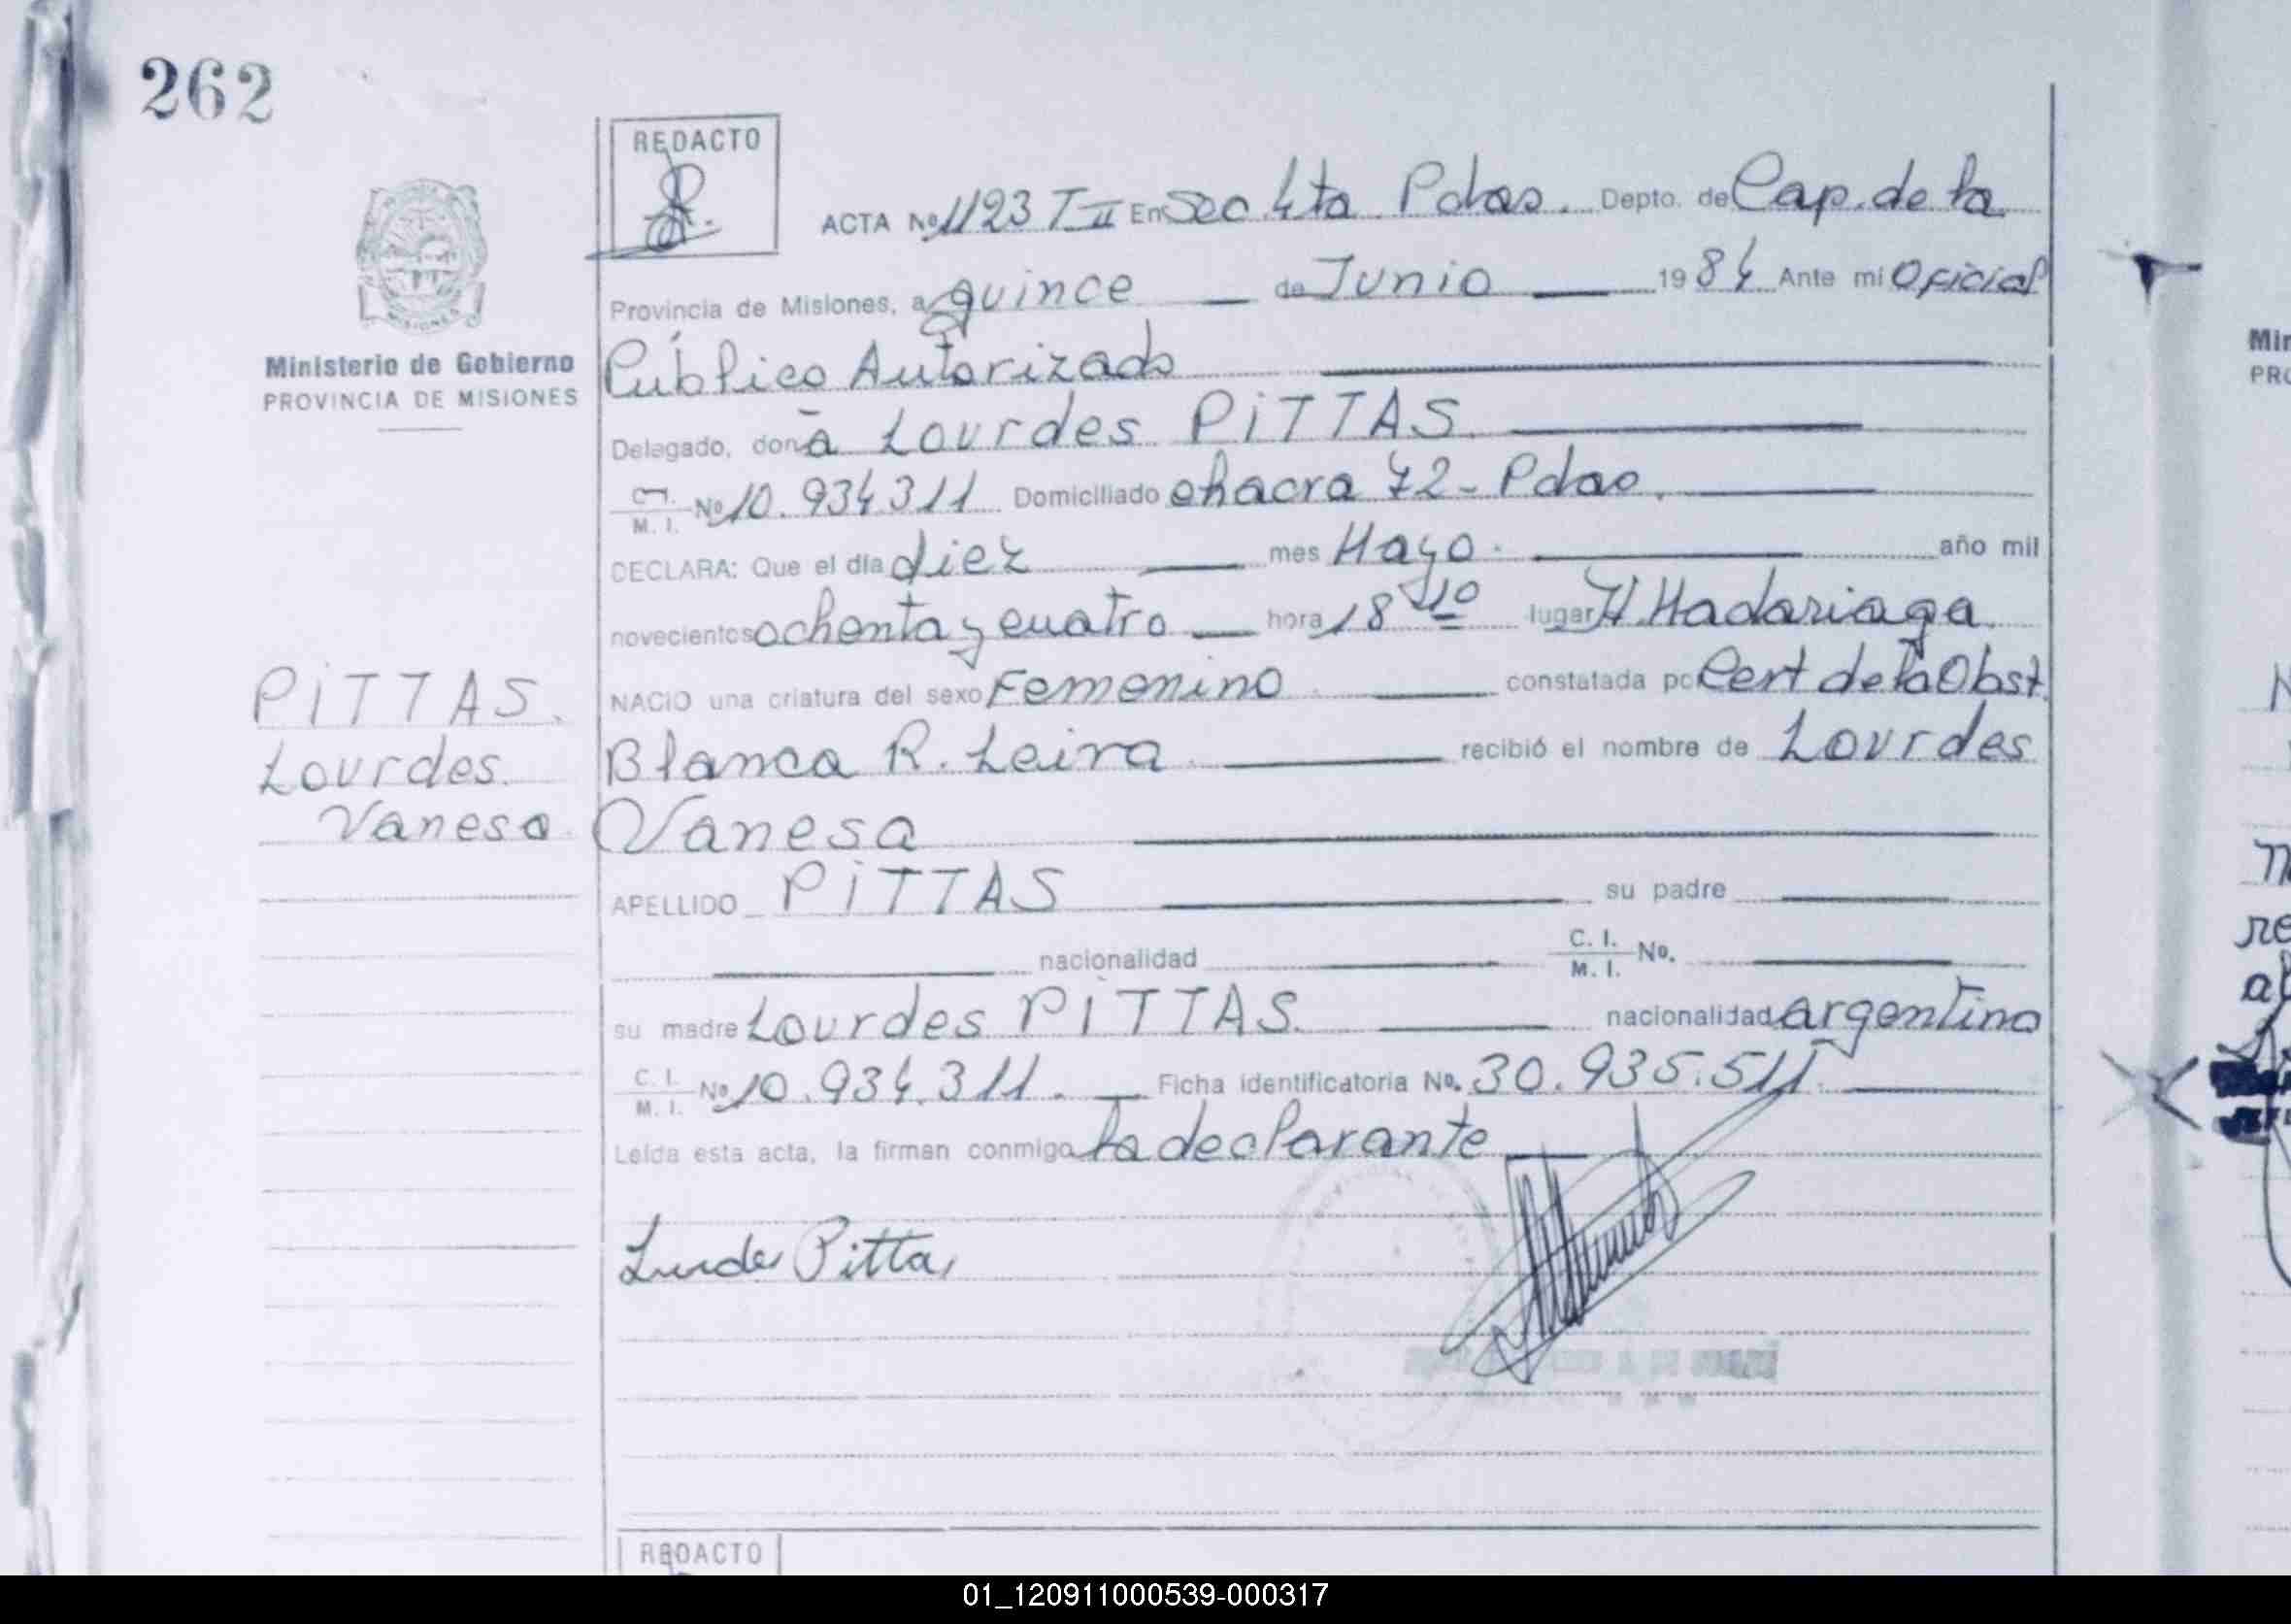 262
REDACTO
ACTA Nº 1123 T II En Sec 4ta Pdas. Depto. de Cap. de la
Provincia de Misiones, a quince de Junio 1984 Ante mi Oficial
Ministerio de Gobierno
PROVINCIA DE MISIONES
Público Autorizado
Delegado, don a Lourdes PiTTAS
C.I. M. I. Nº 10.934.311 Domiciliado chacra 72 - Pdas.
DECLARA: Que el día diez mes Mayo año mil
novecientos ochenta y cuatro hora 18 40 lugar H. Madariaga
NACIO una criatura del sexo Femenino constatada por Cert de la Obst.
PiTTAS.
Lourdes.
Vanesa
Blanca R. Leiva recibió el nombre de Lourdes
Vanesa
APELLIDO PiTTAS su padre
nacionalidad C. I. M. I. No.
su madre Lourdes PiTTAS. nacionalidad argentina
C. I. M. I. Nº 10.934.311. Ficha identificatoria No. 30.935.511.
Leída esta acta, la firman conmigo la declarante
Lurdes Pittas
REDACTO
Min
PRO
01_120911000539-000317